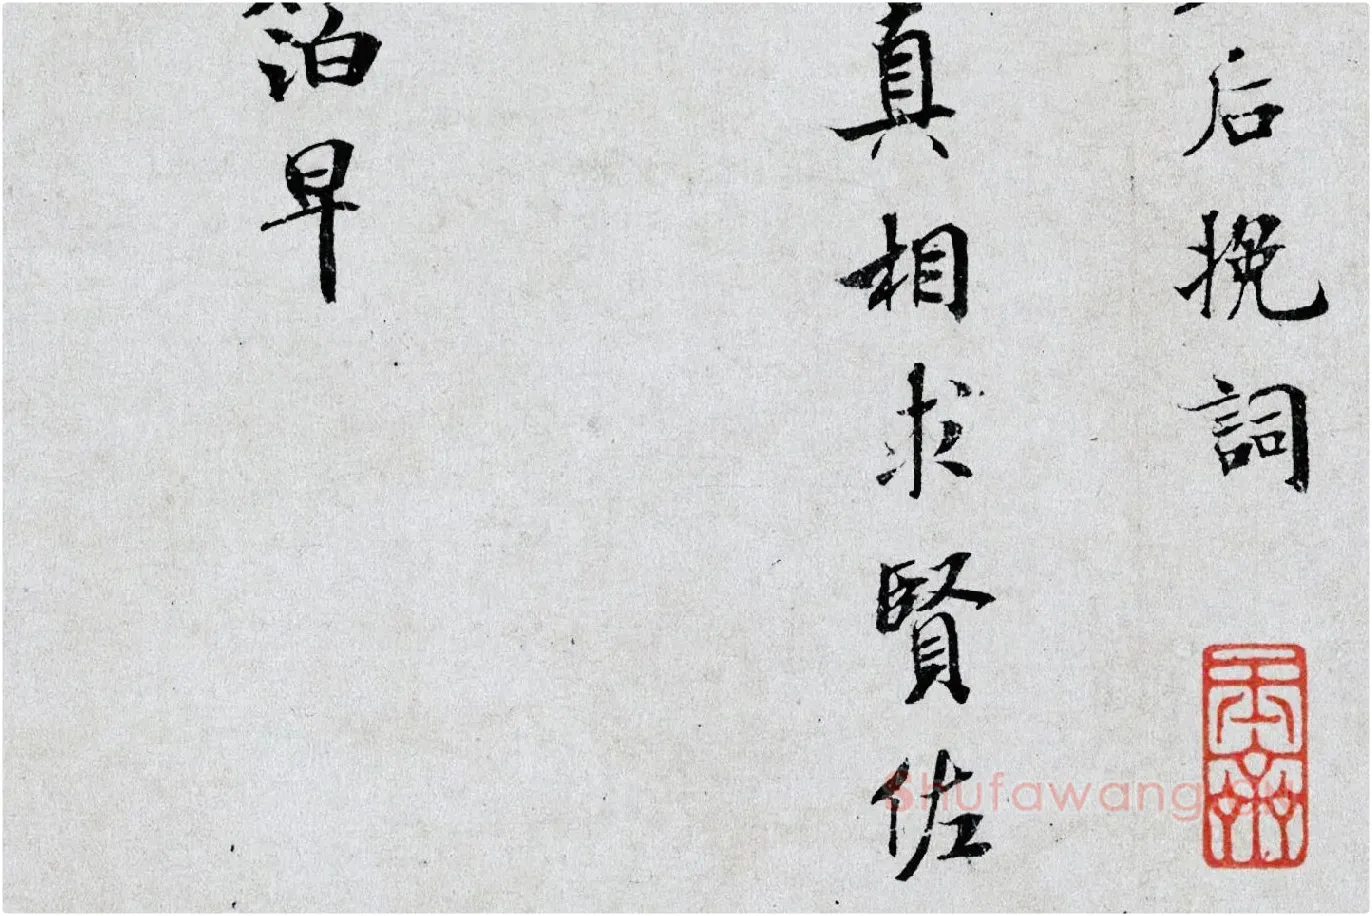 后挽詞
真相求賢佐
泊早
Shufawang.cn